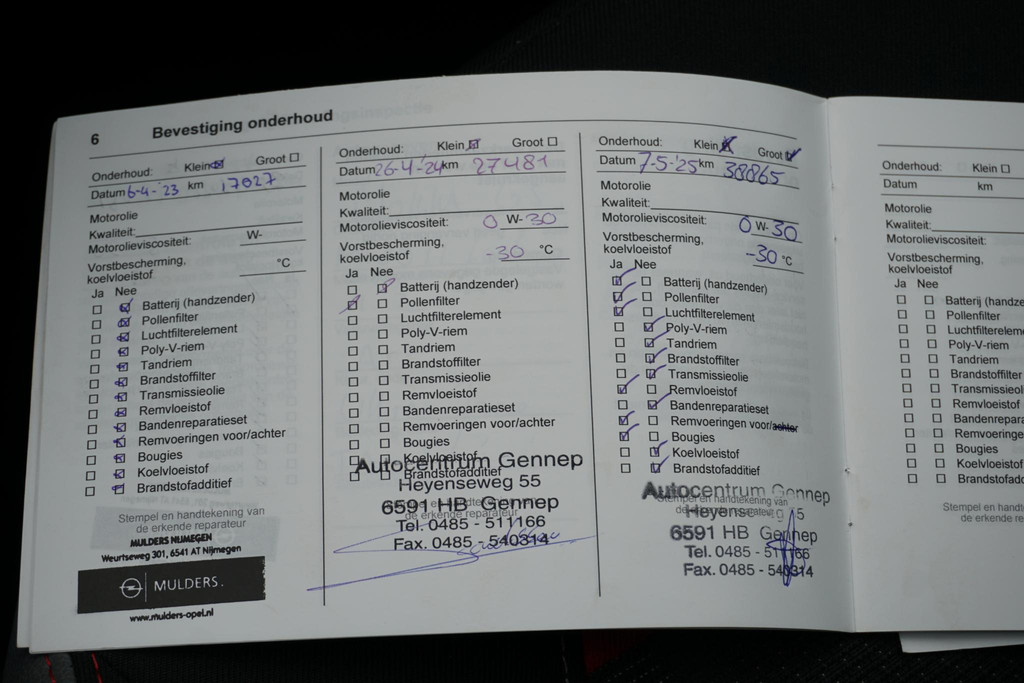 6 Bevestiging onderhoud
Onderhoud: Klein ☒ Groot ☐
Datum 6-4-'23 km 17027
Motorolie
Kwaliteit:
Motorolieviscositeit: W-
Vorstbescherming,
koelvloeistof °C
Ja Nee
☐ ☑ Batterij (handzender)
☐ ☑ Pollenfilter
☐ ☑ Luchtfilterelement
☐ ☑ Poly-V-riem
☐ ☑ Tandriem
☐ ☑ Brandstoffilter
☐ ☑ Transmissieolie
☐ ☑ Remvloeistof
☐ ☑ Bandenreparatieset
☐ ☑ Remvoeringen voor/achter
☐ ☑ Bougies
☐ ☑ Koelvloeistof
☐ ☑ Brandstofadditief
Stempel en handtekening van
de erkende reparateur
MULDERS NIJMEGEN
Weurtseweg 301, 6541 AT Nijmegen
MULDERS.
www.mulders-opel.nl
Onderhoud: Klein ☑ Groot ☐
Datum 26-4-'24 km 27481
Motorolie
Kwaliteit:
Motorolieviscositeit: 0 W- 30
Vorstbescherming,
koelvloeistof -30 °C
Ja Nee
☐ ☑ Batterij (handzender)
☑ ☐ Pollenfilter
☐ ☐ Luchtfilterelement
☐ ☐ Poly-V-riem
☐ ☐ Tandriem
☐ ☐ Brandstoffilter
☐ ☐ Transmissieolie
☐ ☐ Remvloeistof
☐ ☐ Bandenreparatieset
☐ ☐ Remvoeringen voor/achter
☐ ☐ Bougies
☐ ☐ Koelvloeistof
☐ ☐ Brandstofadditief
Autocentrum Gennep
Heyenseweg 55
6591 HB Gennep
Tel. 0485 - 511166
Fax. 0485 - 540314
Onderhoud: Klein ☒ Groot ☑
Datum 7-5-'25 km 38865
Motorolie
Kwaliteit:
Motorolieviscositeit: 0 W- 30
Vorstbescherming,
koelvloeistof -30 °C
Ja Nee
☑ ☐ Batterij (handzender)
☑ ☐ Pollenfilter
☑ ☐ Luchtfilterelement
☐ ☑ Poly-V-riem
☐ ☑ Tandriem
☐ ☑ Brandstoffilter
☐ ☑ Transmissieolie
☑ ☐ Remvloeistof
☐ ☑ Bandenreparatieset
☑ ☐ Remvoeringen voor/achter
☑ ☐ Bougies
☐ ☑ Koelvloeistof
☐ ☑ Brandstofadditief
Stempel en handtekening van
Autocentrum Gennep
6591 HB Gennep
Tel. 0485 - 511166
Fax. 0485 - 540314
Onderhoud: Klein ☐
Datum km
Motorolie
Kwaliteit:
Motorolieviscositeit:
Vorstbescherming,
koelvloeistof
Ja Nee
☐ ☐ Batterij (handze
☐ ☐ Pollenfilter
☐ ☐ Luchtfiltereleme
☐ ☐ Poly-V-riem
☐ ☐ Tandriem
☐ ☐ Brandstoffilter
☐ ☐ Transmissieol
☐ ☐ Remvloeistof
☐ ☐ Bandenrepara
☐ ☐ Remvoeringen
☐ ☐ Bougies
☐ ☐ Koelvloeistof
☐ ☐ Brandstofadd
Stempel en hand
de erkende re